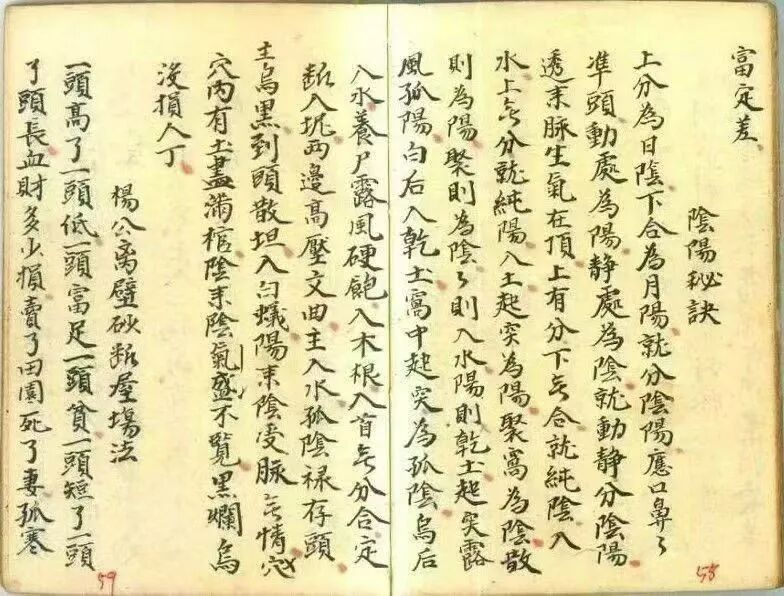 富定差
陰陽秘訣
上分為日陰下合為月陽就分陰陽應口鼻々
準頭動處為陽静處為陰就動静分陰陽
透末脉生氣在頂上有分下无合就純陰入
水上无分就純陽入土起突為陽聚窩為陰散
則為陽聚則為陰々則入水陽則乾土起突露
風孤陽白后入乾土窩中起突為孤陰烏后
入水養尸露風硬飽入木根入首无分合定
断入坑西邊高壓文曲主入水孤陰禄存頭
土烏黑到頭散坦入白蟻陽末陰受脉无情穴
穴内有土盡满棺陰末陰氣盛不覧黑爛烏
没損人丁
楊公离壁砂断屋場法
一頭高了一頭低一頭富足一頭貧一頭短了一頭
了頭長血財多少損賣了田園死了妻孤寒
59
58